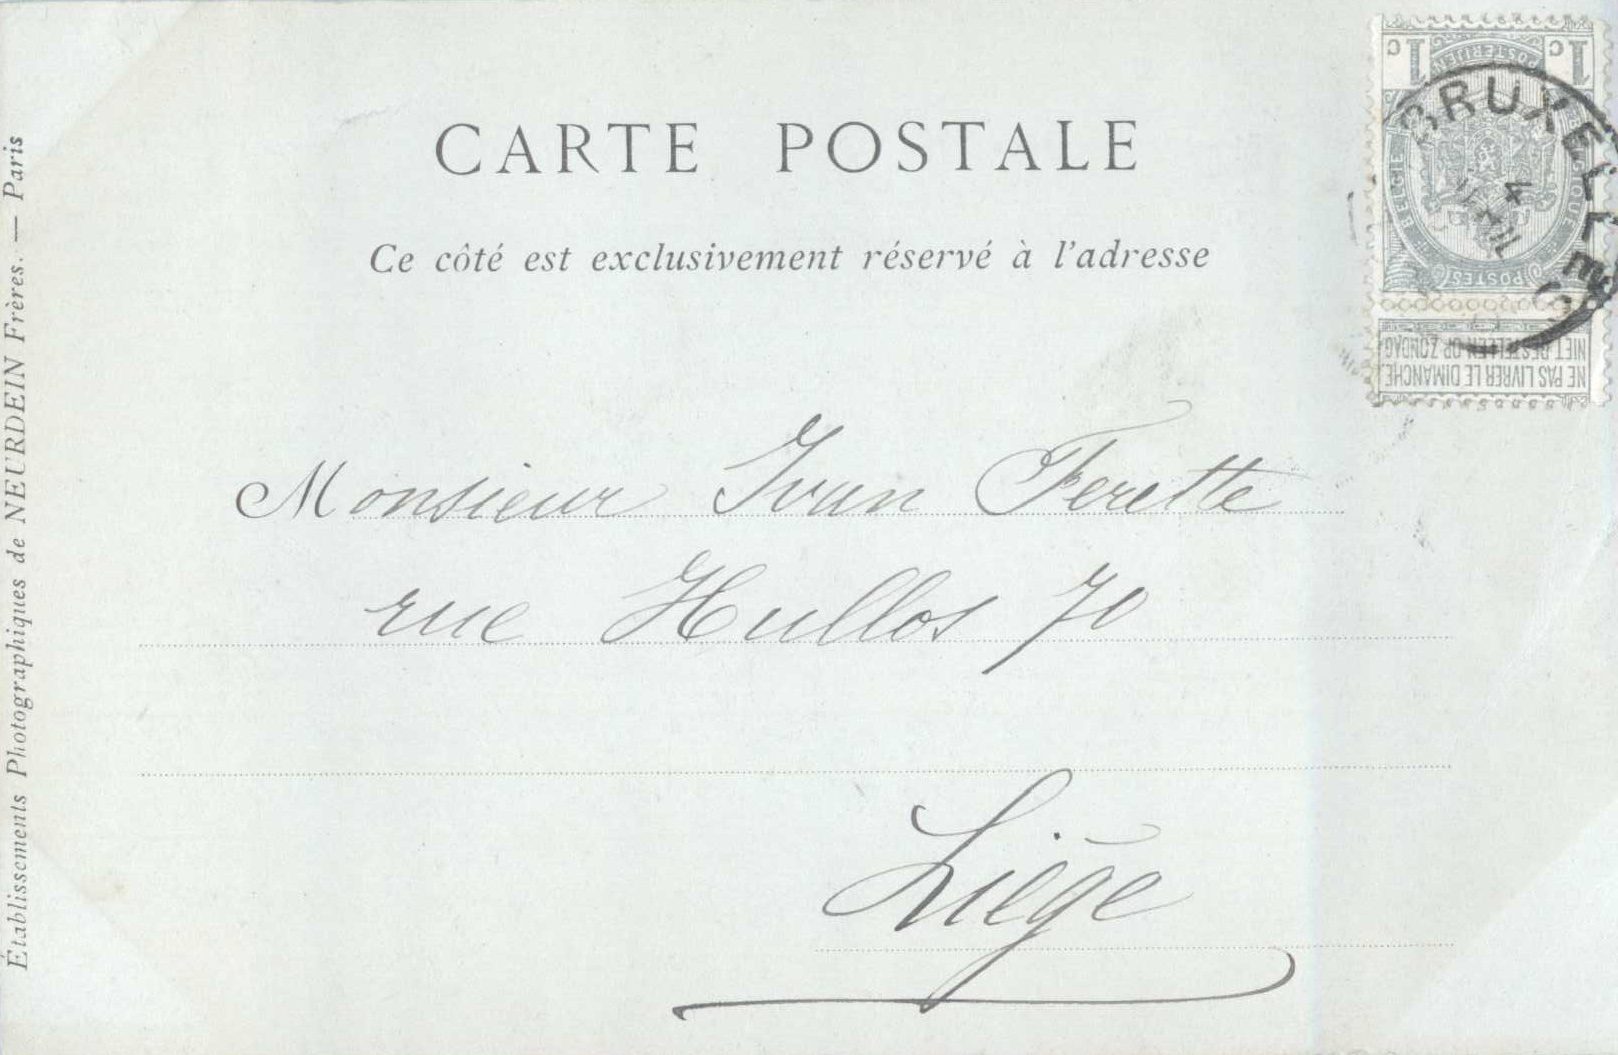 CARTE POSTALE
Ce côté est exclusivement réservé à l'adresse
Monsieur Ivan Ferette
rue Hullos 70
Liége
Établissements Photographiques de NEURDEIN Frères. — Paris
1c 1c
POSTERIJEN
BELGIE BELGIQUE
POSTES
NIET BESTELLEN OP ZONDAG
NE PAS LIVRER LE DIMANCHE
BRUXELLES
4